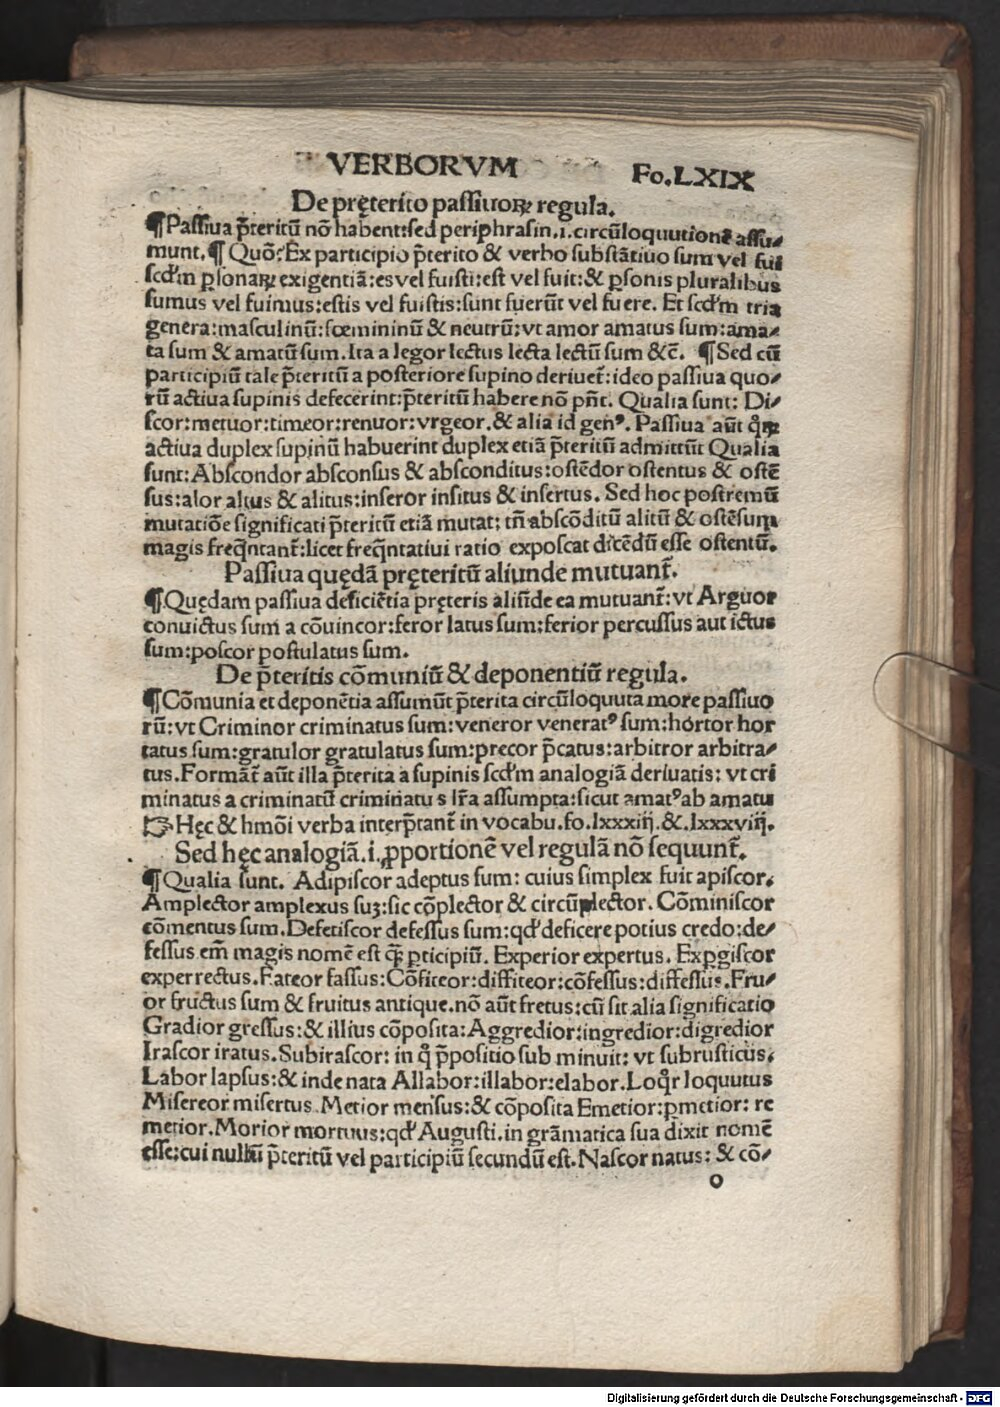 VERBORVM Fo.LXIX
De pręterito passiuoꝝ regula.
¶Passiua p̄teritū nō habent:sed periphrasin.i.circūloquutionē assu⸗
munt.¶ Quō? Ex participio p̄terito & verbo substātiuo sum vel fui
scd'm ꝑsonaꝝ exigentiā:es vel fuisti:est vel fuit:& ꝑsonis pluralibus
sumus vel fuimus:estis vel fuistis:sunt fuerūt vel fuere. Et scd'm tria
genera:masculinū:fœmininū & neutrū:vt amor amatus sum:ama⸗
ta sum & amatū sum.Ita a legor lectus lecta lectū sum &c̄. ¶Sed cū
participiū tale p̄teritū a posteriore supino deriuet̄:ideo passiua quo⸗
rū actiua supinis defecerint:p̄teritū habere nō pn̄t. Qualia sunt: Di⸗
scor:metuor:timeor:renuor:vrgeor.& alia id genꝰ. Passiua aūt qͦꝝ
actiua duplex supinū habuerint duplex etiā p̄teritū admittūt Qualia
sunt:Abscondor absconsus & absconditus:ostēdor ostentus & ostē
sus:alor altus & alitus:inseror insitus & insertus. Sed hoc postremū
mutatiōe significati p̄teritū etiā mutat; tn̄ abscōditū alitū & ostēsum
magis freq̄ntant̄:licet freq̄ntatiui ratio exposcat dicēdū esse ostentū.
Passiua quędā pręteritū aliunde mutuant̄.
¶Quędam passiua deficiētia pręteris aliūde ea mutuant̄:vt Arguor
conuictus sum a cōuincor:feror latus sum:ferior percussus aut ictus
sum:poscor postulatus sum.
De p̄teritis cōmuniū & deponentiū regula.
¶Cōmunia et deponētia assumūt p̄terita circūloquuta more passiuo
rū:vt Criminor criminatus sum:veneror veneratꝰ sum:hortor hor
tatus sum:gratulor gratulatus sum:precor p̄catus:arbitror arbitra⸗
tus.Formāt̄ aūt illa p̄terita a supinis scd'm analogiā deriuatis: vt cri
minatus a criminatū criminatu s lr̄a assumpta:sicut amatꝰ ab amatu
☞Hęc & hmōi verba interp̄tant̄ in vocabu.fo.lxxxiij.&.lxxxviij.
Sed hęc analogiā.i.ꝓportionē vel regulā nō sequunt̄.
¶Qualia sunt. Adipiscor adeptus sum: cuius simplex fuit apiscor.
Amplector amplexus suȝ:sic cōplector & circūplector. Cōminiscor
cōmentus sum.Defetiscor defessus sum:qd' deficere potius credo:de⸗
fessus em̄ magis nomē est q̄ꝫ ꝑticipiū. Experior expertus. Exꝑgiscor
experrectus.Fateor fassus:Cōfiteor:diffiteor:cōfessus:diffessus.Fru⸗
or fructus sum & fruitus antique.nō aūt fretus:cū sit alia significatio
Gradior gressus:& illius cōposita:Aggredior:ingredior:digredior
Irascor iratus.Subirascor: in qͦ p̄positio sub minuit: vt subrusticus.
Labor lapsus:& inde nata Allabor:illabor:elabor.Loqͦr loquutus
Misereor misertus.Metior mensus:& cōposita Emetior:ꝑmetior: re
metior.Morior mortuus:qd' Augusti.in grāmatica sua dixit nomē
esse:cui nullū p̄teritū vel participiū secundū est.Nascor natus: & cō⸗
o
Digitalisierung gefördert durch die Deutsche Forschungsgemeinschaft - DFG